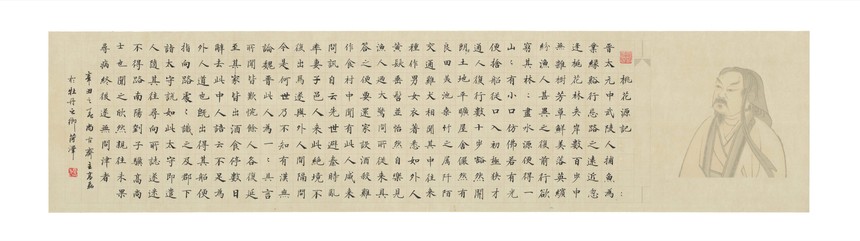 桃花源记
晋太元中武陵人捕魚為
業緣谿行忘路之遠近忽
逢桃花林夹岸數百步中
無雜樹芳草鮮美落英繽
紛漁人甚異之復前行欲
窮其林：盡水源便得一
山：有小口仿佛若有光
便捨船從口入初極狭才
通人復行數十步豁然開
朗土地平曠屋舍儼然有
良田美池桑竹之属阡陌
交通雞犬相聞其中往来
種作男女衣著悉如外人
黄髮垂髫並怡然自樂見
漁人乃大驚問所從来具
答之便要還家設酒殺雞
作食村中聞有此人咸来
問訊自云先世避秦時亂
率妻子邑人来此絶境不
復出焉遂與外人間隔問
今是何世乃不知有漢無
論魏晉此人為一：具言
所聞皆歎惋餘人各復延
至其家皆出酒食停數日
辭去此中人語云不足為
外人道也既出得其船便
指向路處：誌之及郡下
詣太守說如此太守即遣
人隨其往尋向所誌遂迷
不得路南陽劉子驥高尚
士也聞之欣然親往未果
尋病終後遂無問津者
辛丑之夏尚古齋主
於牡丹之鄉菏澤